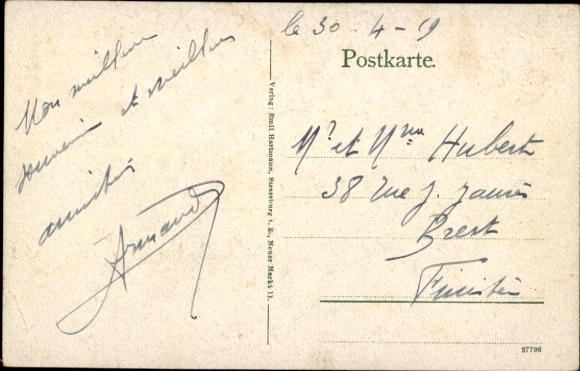 le 30-4-19
Postkarte.
Mon meilleur
souvenir et meilleures
amitiés
Armand
Verlag: Emil Hartmann, Strassburg i. E., Neuer Markt 11.
Mr et Mme Hubert
38 rue J. Jaurès
Brest
Finistère
27796